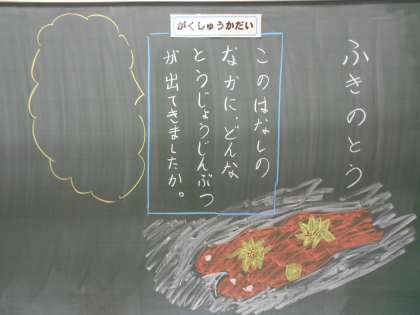 ふきのとう
がくしゅうかだい
このはなしの
なかに、どんな
とうじょうじんぶつ
が出てきましたか。